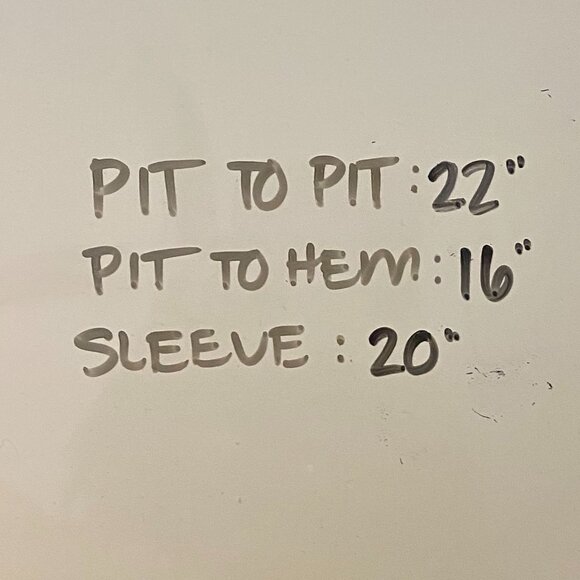 PIT TO PIT: 22"
PIT TO HEM: 16"
SLEEVE: 20"